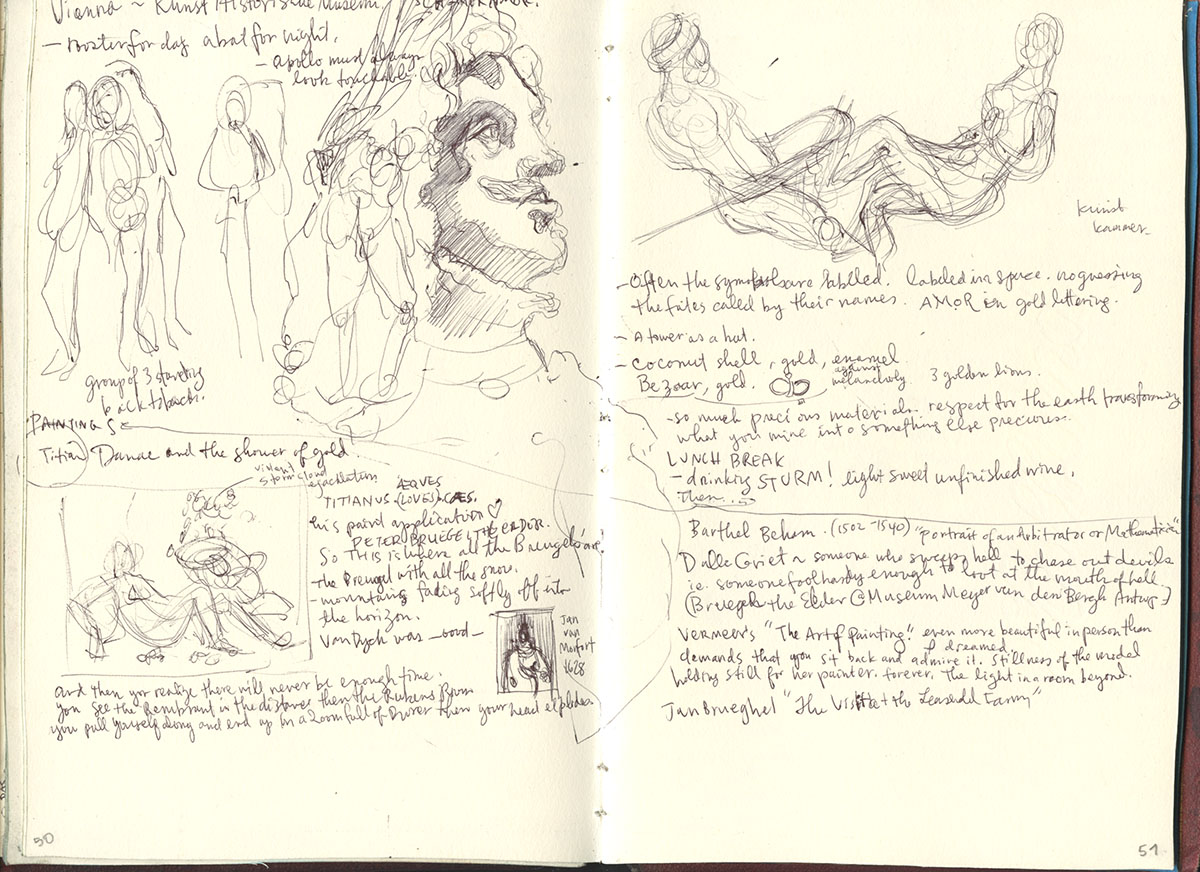 Vianna ~ Kunst Historische Museum.
- rooster for day a bat for night.
- Apollo must always
look touchable.
group of 3 standing
back to back.
PAINTINGS
Titian Danae and the shower of gold.
violent
storm cloud
ejaculation
AEQVES
TITIANUS (LOVES) CAES.
his paint application ♡
PETER BRUEGEL THE ELDER.
So THIS is where all the Breugels are
- The Breugel with all the snow.
- mountains fading softly off into
the horizon.
Van Dyck was - good -
Jan
van
1628
and then you realize there will never be enough time.
you see the Rembrant in the distance then the Rubens Room
you pull yourself along and end up in a room full of Durer then your head explodes.
50
Kunst
kammer
- Often the symbols are lablled. labeled in space. no guessing
the fates called by their names. AMOR in gold lettering.
- A tower as a hat.
- coconut shell, gold, enamel
Bezoar, gold. against
melancholy. 3 golden lions.
- so much precious materials. respect for the earth transforming
what you mine into something else precious.
LUNCH BREAK
- drinking STURM! light sweet unfinished wine.
Then...
Barthel Beham. (1502-1540) "Portrait of an Arbitrator or Mathematician"
Dulle Griet ~ someone who sweeps hell to chase out devils
i.e. someone foolhardy enough to loot at the mouth of hell
(Bruegel the Elder @ Museum Meyer van den Bergh Antwp.)
VERMEER'S "The Art of Painting". even more beautiful in person than
I dreamed.
demands that you sit back and admire it. Stillness of the model
holding still for her painter. forever. The light in a room beyond.
Jan Brueghel "The Visit at the Farm"
51